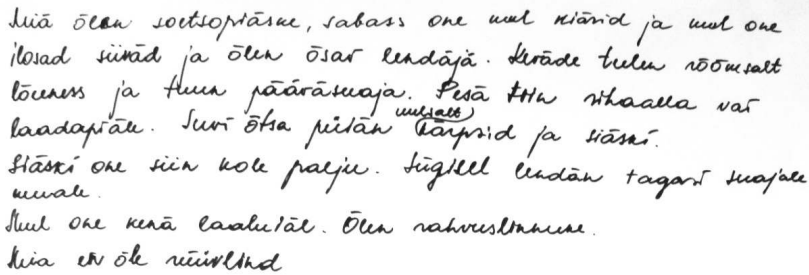 Miä õlen soetsopiäske, sabass one mul kiärid ja mul one
ilosad siiväd ja õlen õsav lendäjä. Keväde tulen rõõmsalt
lõuness ja tuun pääväsuaja. Pesä tiin rihaalla vai
laadapiäle. Suvi õtsa püiän uulsalt kärpsid ja siäski.
Siäski one siin kole palju. Sügisel lendän tagasi suajale
muale.
Mul one kenä laaluiäl. Õlen rahvuslinnuke.
Mia ei õle rüüvlind